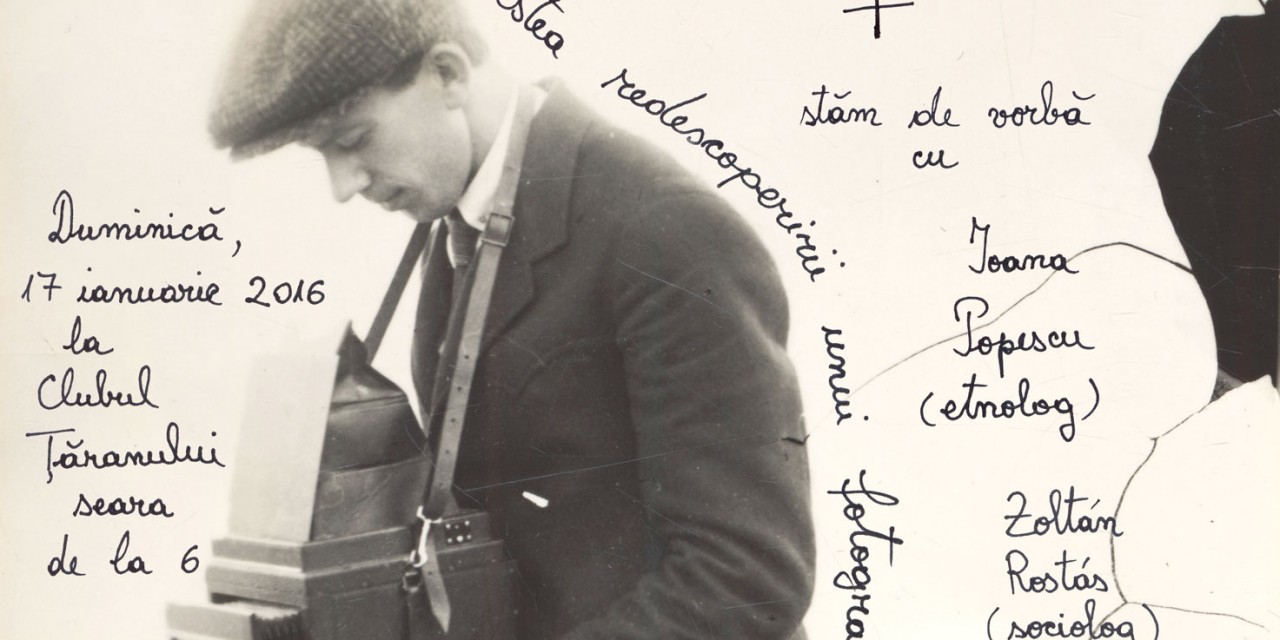 redescoperirii
unui
Duminică,
17 ianuarie 2016
la
Clubul
Țăranului
seara
de la 6
+
stăm de vorbă
cu
Ioana
Popescu
(etnolog)
Zoltán
Rostás
(sociolog)